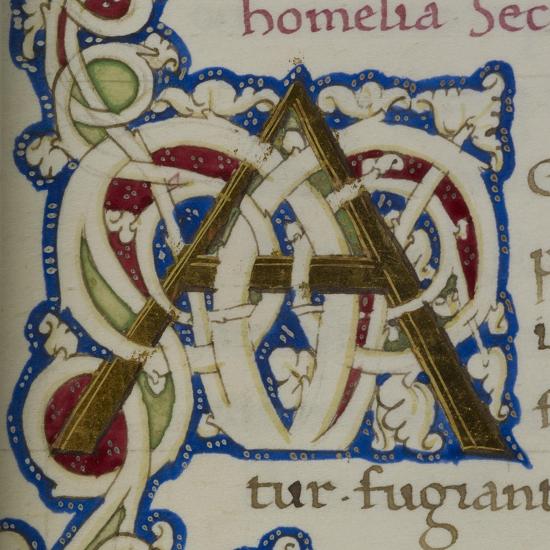 homelia Sec
A
tur · fugiant